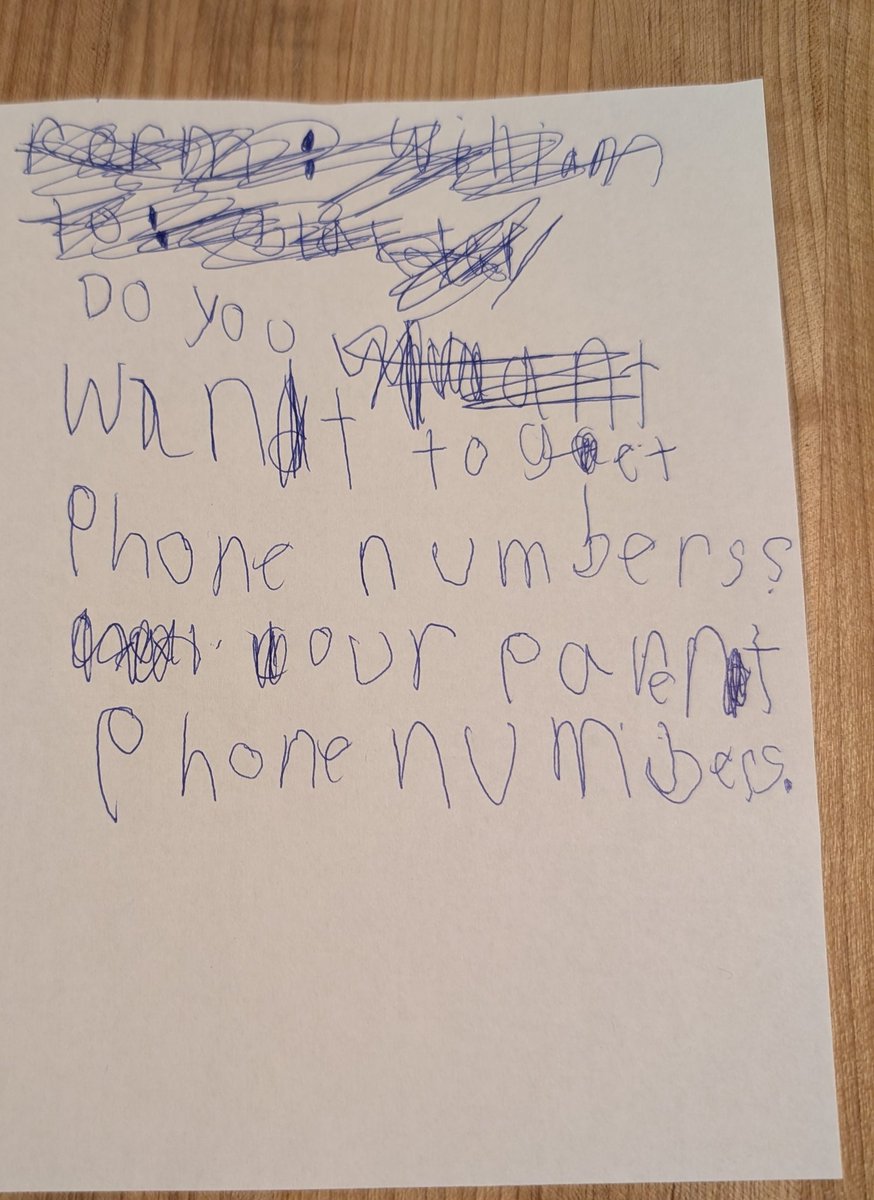 Do you
Want to get
Phone numberss
our parent
Phone numbers.